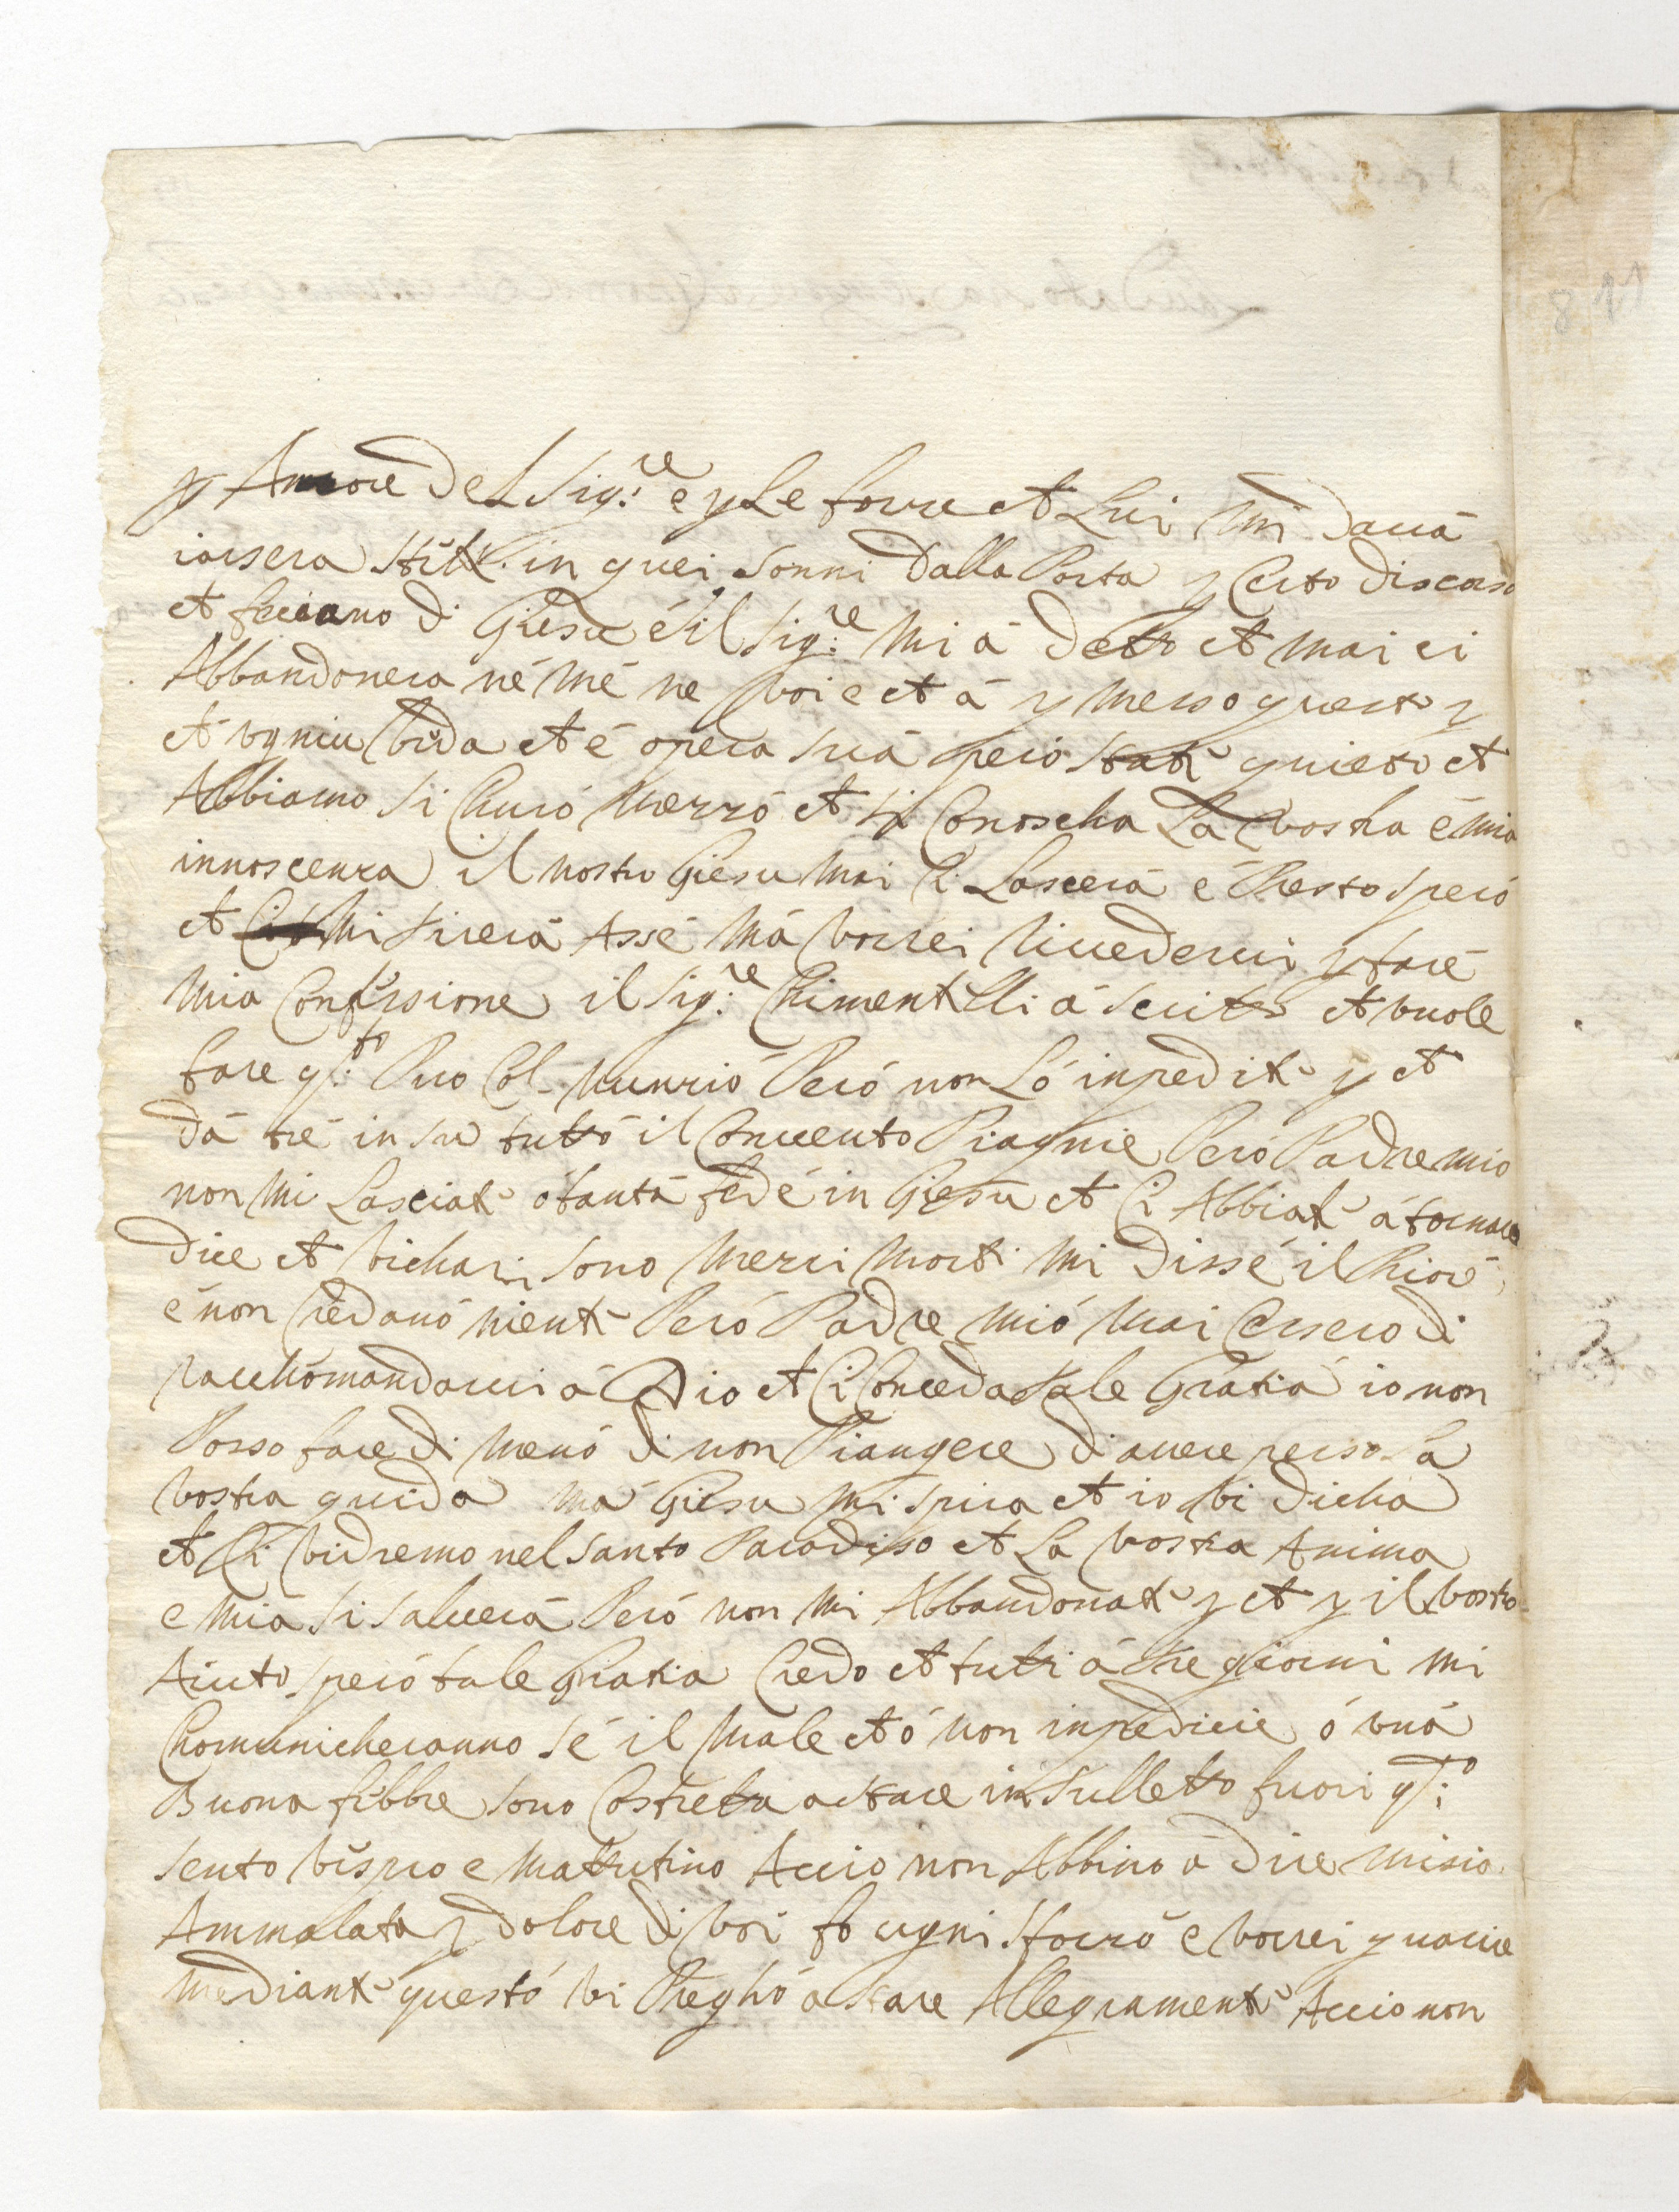 p Amore del Sig.re e p le forze et Lui mi dauà
iarsera stik in quei sonni dalla Porta p Certo discorso
et feciano di Giesu é il Sig.re mi à detto et mai ci
Abbandonera né mé ne voi e et à p messo quest p
et vgniu vida et é opera suà però stati quieto et
Abbiamo si Churó merzó et si Conoscha La vostra é mia
innoscenza il nostro Giesu mai Ci Lascerà é Presto speró
et mi tirerà Assé mà vorrei Riuederui p faré
mia Confessione il Sig.re Chimentelli à scritto et vuole
fare q.to Puo Col Nunzió Peró non Ló inpedite p et
dà tré in su tuttó il Conuento Piagnie Peró Padre mio
non mi Lasciate ó tantà fedé in Giesu et Ci Abbiate á tornare
dice et vichari sono Mezzi morti mi dissé il Prioré
é non Credanó niente Peró Padre mió mai Cesseró di
racchomandarui á Dio et Ci Conceda tale Gratià io non
Posso fare di menó di non Piangere d auere perso La
vostra guida má Giesu mi spira et io vi dicha
et Ci vidremo nel santo Paradiso et La vostra Anima
e mià si saluerà Peró non mi Abbandonate p et p il vostro
Aiuto speró tale Gratia Credo et tutti à tré giorni mi
Chomunicheranno sé il male et ó non inpediscie ó vnà
Buona fibbre sono Costretta a stare in sulletto fuori q.o
sento vispro e mattutino Accio non Abbino à dire mi sia
Ammalata p dolore di voi fo vgni sforzo e vorrei guarire
mediante questó vi Preghó a stare Allegramente Accio non